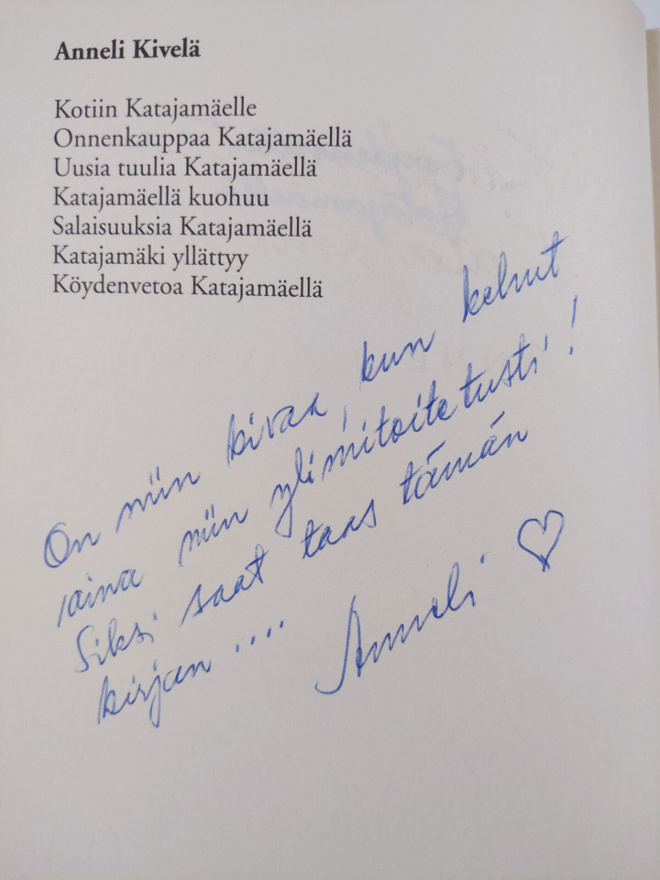 Anneli Kivelä
Kotiin Katajamäelle
Onnenkauppaa Katajamäellä
Uusia tuulia Katajamäellä
Katajamäellä kuohuu
Salaisuuksia Katajamäellä
Katajamäki yllättyy
Köydenvetoa Katajamäellä
On niin kivaa, kun kehut
aina niin ylimitoitetusti!
Siksi saat taas tämän
kirjan ....
Anneli ♡